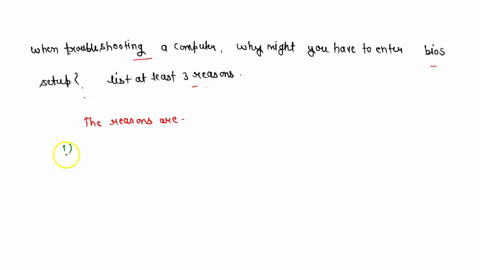 when troubleshooting a computer, why might you have to enter bios
setup? list at least 3 reasons.
The reasons are-
1)